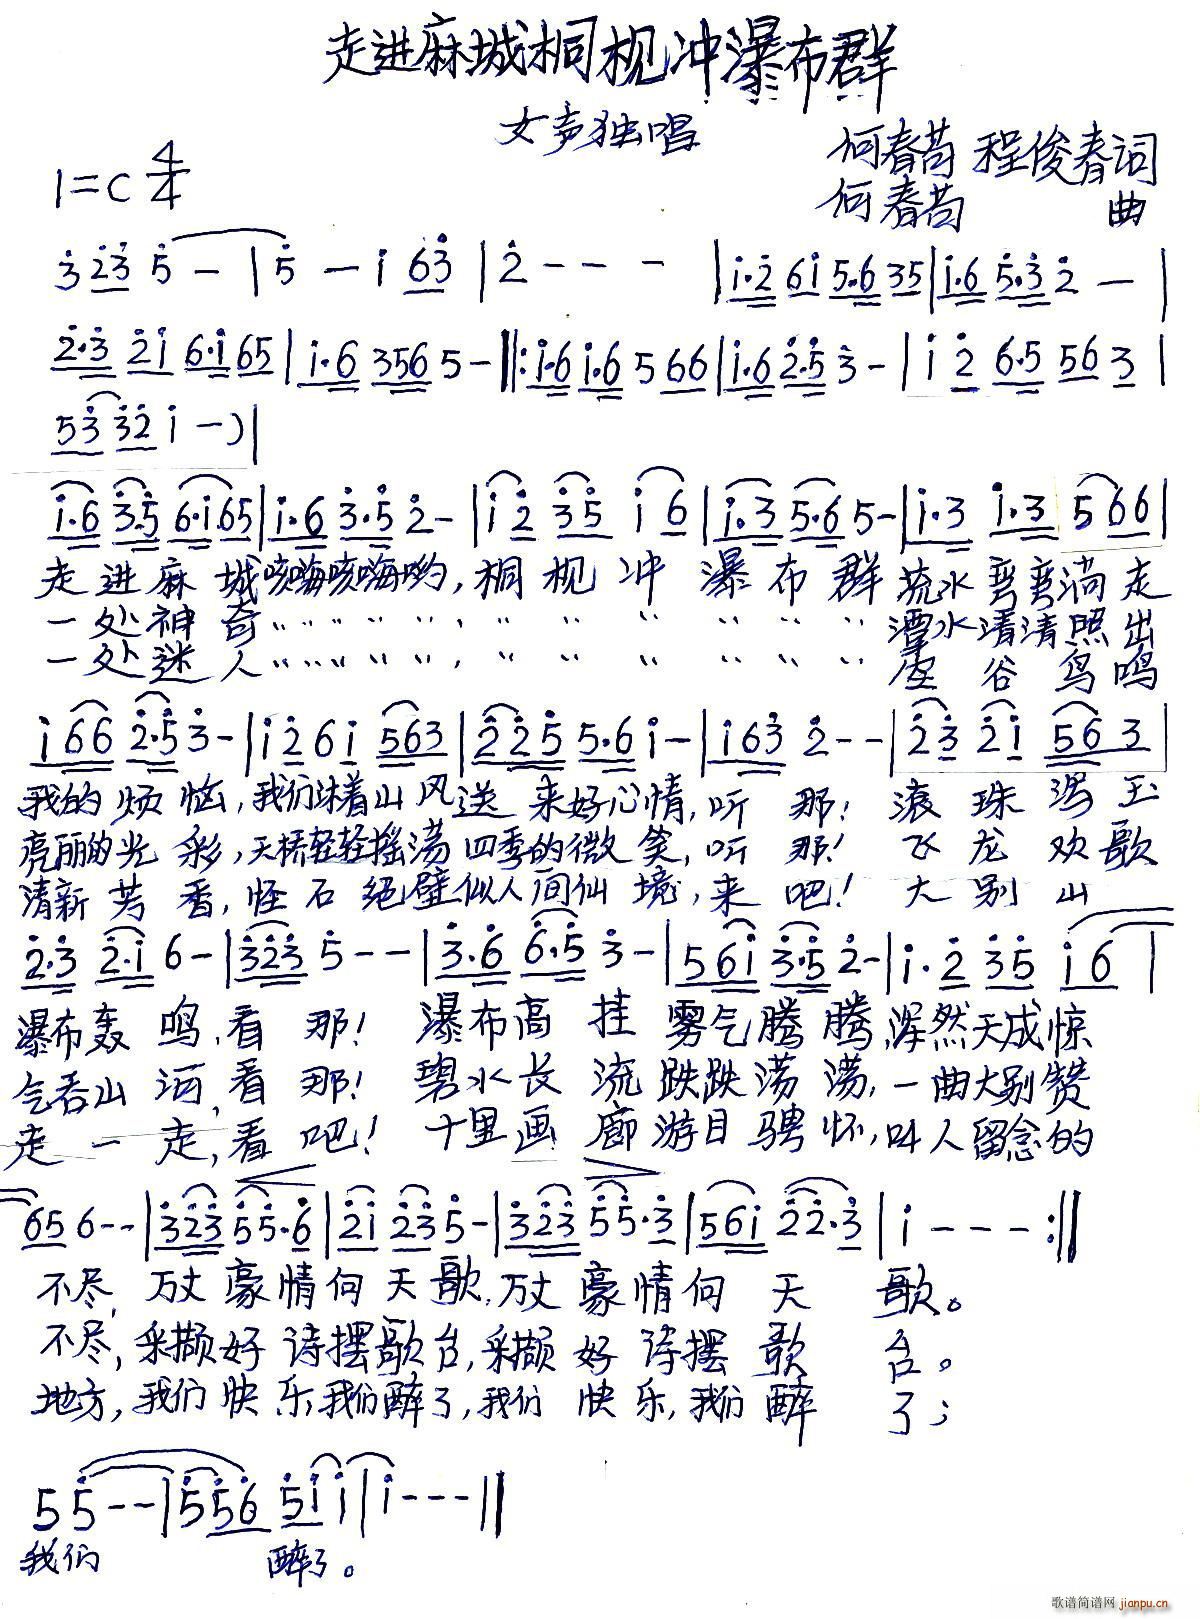 走进麻城桐枧冲瀑布群
女声独唱
何春苟 程俊春词
何春苟 曲
1=C 4/4
3 23 5 - | 5 - i 63 | 2 - - - | i·2 6i 5·6 35 | i·6 5·3 2 - |
2·3 2i 6·i 65 | i·6 356 5 - ‖: i·6 i·6 5 66 | i·6 2·5 3 - | i 2 6·5 56 3 |
53 32 i - ) |
i·6 3·5 6·i 65 | i·6 3·5 2 - | i 2 35 i 6 | i·3 5·6 5 - | i·3 i·3 5 66 |
走进麻城咳嗨咳嗨哟,桐枧冲瀑布群流水弯弯淌走
一处神奇〃〃〃〃〃,〃〃〃〃〃〃潭水清清照出
一处迷人〃〃〃〃〃,〃〃〃〃〃〃空谷鸟鸣
i 66 2·5 3 - | i 2 6 i 563 | 2 25 5·6 i - | i 63 2 - - | 23 2i 56 3 |
我的烦恼,我们沐着山风送来好心情,听那!滚珠泻玉
亮丽的光彩,天桥轻轻摇荡四季的微笑,听那!飞龙欢歌
清新芳香,怪石绝壁似人间仙境,来吧!大别山
2·3 2·i 6 - | 323 5 - - | 3·6 6·5 3 - | 56i 3·5 2 - | i·2 35 i6 |
瀑布轰鸣,看那!瀑布高挂雾气腾腾,浑然天成惊
气吞山河,看那!碧水长流跌跌荡荡,一曲大别赞
走一走,看吧!十里画廊游目骋怀,叫人留念的
65 6 - - | 323 55·6 | 2i 23 5 - | 323 55·3 | 56i 22·3 | i - - - :‖
不尽,万丈豪情向天歌,万丈豪情向天歌。
不尽,采撷好诗摆歌台,采撷好诗摆歌台。
地方,我们快乐,我们醉了,我们快乐,我们醉了;
5 5 - - | 5 56 5i i | i - - - ‖
我们醉了。
歌谱简谱网 jianpu.cn